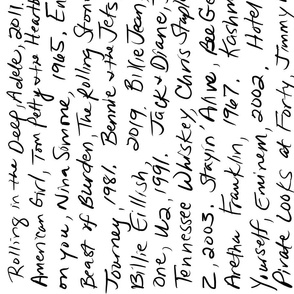 Rolling in the Deep, Adele, 2011.
American Girl, Tom Petty & the Heartb
on you, Nina Simone, 1965. En
Beast of Burden, The Rolling Ston
Journey, 1981. Bennie & the Jets
Billie Eillish, 2019. Billie Jean,
One, U2, 1991. Jack & Diane,
Tennessee Whiskey, Chris Staple
Z, 2003. Stayin' Alive, Bee Ge
Aretha Franklin, 1967. Kashm
Yourself, Eminem, 2002. Hotel
Pirate Looks at Forty, Jimmy